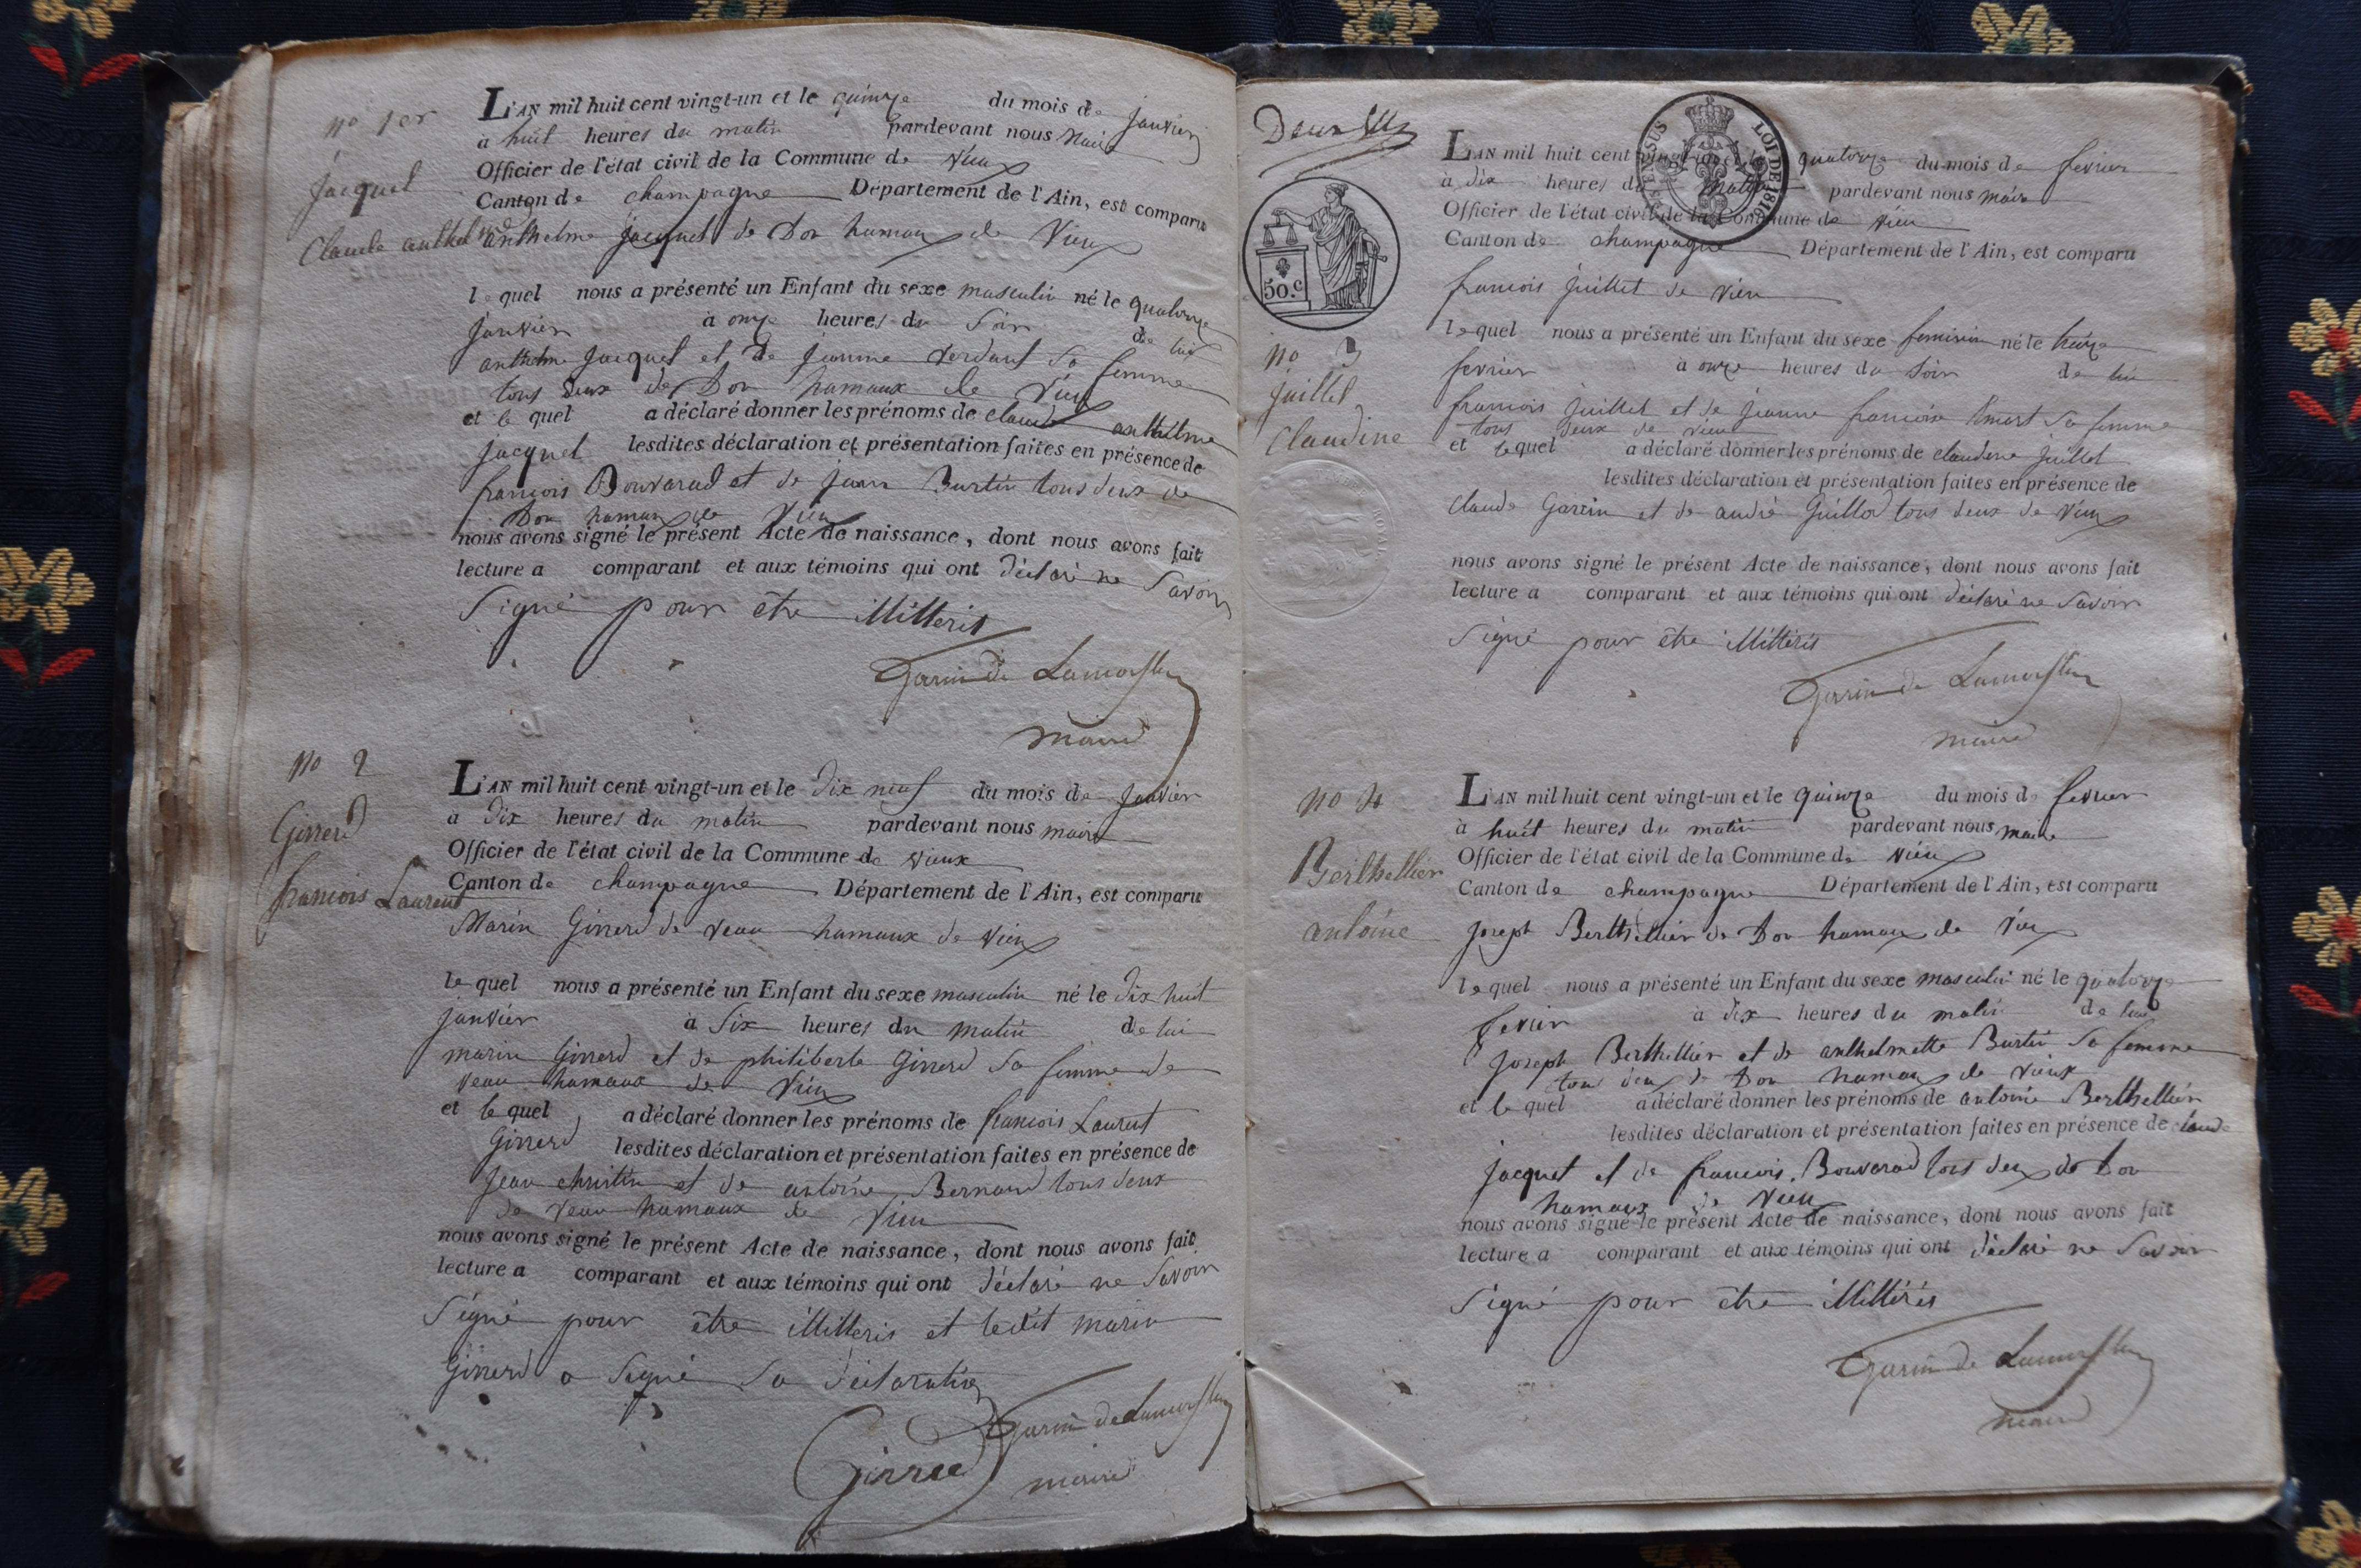 no 1er
Jacquet
Claude anthelme
L'AN mil huit cent vingt-un et le quinze du mois de janvier
a huit heures du matin pardevant nous maire
Officier de l'état civil de la Commune de Vieux
Canton de champagne Département de l'Ain, est comparu
anthelme jacquet de Don hamaux de Vieux
le quel nous a présenté un Enfant du sexe masculin né le quatorze
janvier à onze heures du Soir de lui
anthelme jacquet et de jeanne Verdant Sa femme
tous deux de Don hamaux de Vieux
et le quel a déclaré donner les prénoms de claude anthelme
jacquet lesdites déclaration et présentation faites en présence de
françois Bouvarad et de jean Burtin tous deux de
Don hamaux de Vieux
nous avons signé le présent Acte de naissance, dont nous avons fait
lecture a comparant et aux témoins qui ont déclaré ne Savoir
Signé pour être illitteris
Garin de Lamorflan
maire
no 2
Girrerd
francois Laurent
L'AN mil huit cent vingt-un et le dix neuf du mois de janvier
a dix heures du matin pardevant nous maire
Officier de l'état civil de la Commune de vieux
Canton de champagne Département de l'Ain, est comparu
Marin Girrerd de veau hamaux de vieux
le quel nous a présenté un Enfant du sexe masculin né le dix huit
janvier à Six heures du matin de lui
marin Girrerd et de philiberte Girrerd Sa femme de
veau hamaux de Vieux
et le quel a déclaré donner les prénoms de francois Laurent
Girrerd lesdites déclaration et présentation faites en présence de
jean christin et de antoine Bernard tous deux
de veau hamaux de vieu
nous avons signé le présent Acte de naissance, dont nous avons fait
lecture a comparant et aux témoins qui ont déclaré ne Savoir
Signé pour être illitteris et ledit marin
Girrerd a Signé Sa déclaration
Girrerd Garin de Lamorflan
maire
Deux
50.c
TIMBRE ROYAL
EN SUS LOI DE 1816
no 3
juillet
Claudine
L'AN mil huit cent vingt-un et le quatorze du mois de fevrier
à dix heures du matin pardevant nous maire
Officier de l'état civil de la Commune de vieu
Canton de champagne Département de l'Ain, est comparu
francois juillet de vieu
le quel nous a présenté un Enfant du sexe feminin né le treize
fevrier à onze heures du Soir de lui
francois juillet et de jeanne francoise Sa femme
tous deux de vieu
et le quel a déclaré donner les prénoms de claudine juillet
lesdites déclaration et présentation faites en présence de
claude Garin et de andré Guillod tous deux de Vieux
nous avons signé le présent Acte de naissance, dont nous avons fait
lecture a comparant et aux témoins qui ont déclaré ne Savoir
Signé pour être illitteris
Garin de Lamorflan
maire
no 4
Berthellier
antoine
L'AN mil huit cent vingt-un et le quinze du mois d fevrier
à huit heures du matin pardevant nous maire
Officier de l'état civil de la Commune de vieux
Canton de champagne Département de l'Ain, est comparu
joseph Berthellier de Don hamaux de Vieux
le quel nous a présenté un Enfant du sexe masculin né le quatorze
fevrier à dix heures du matin de lui
joseph Berthellier et de anthelmette Burtin Sa femme
tous deux de Don hamaux de vieux
et le quel a déclaré donner les prénoms de antoine Berthellier
lesdites déclaration et présentation faites en présence de claude
jacquet et de francois Bouvarad tous deux de Don
hamaux de Vieux
nous avons signé le présent Acte de naissance, dont nous avons fait
lecture a comparant et aux témoins qui ont déclaré ne Savoir
Signé pour être illittéris
Garin de Lamorflan
maire